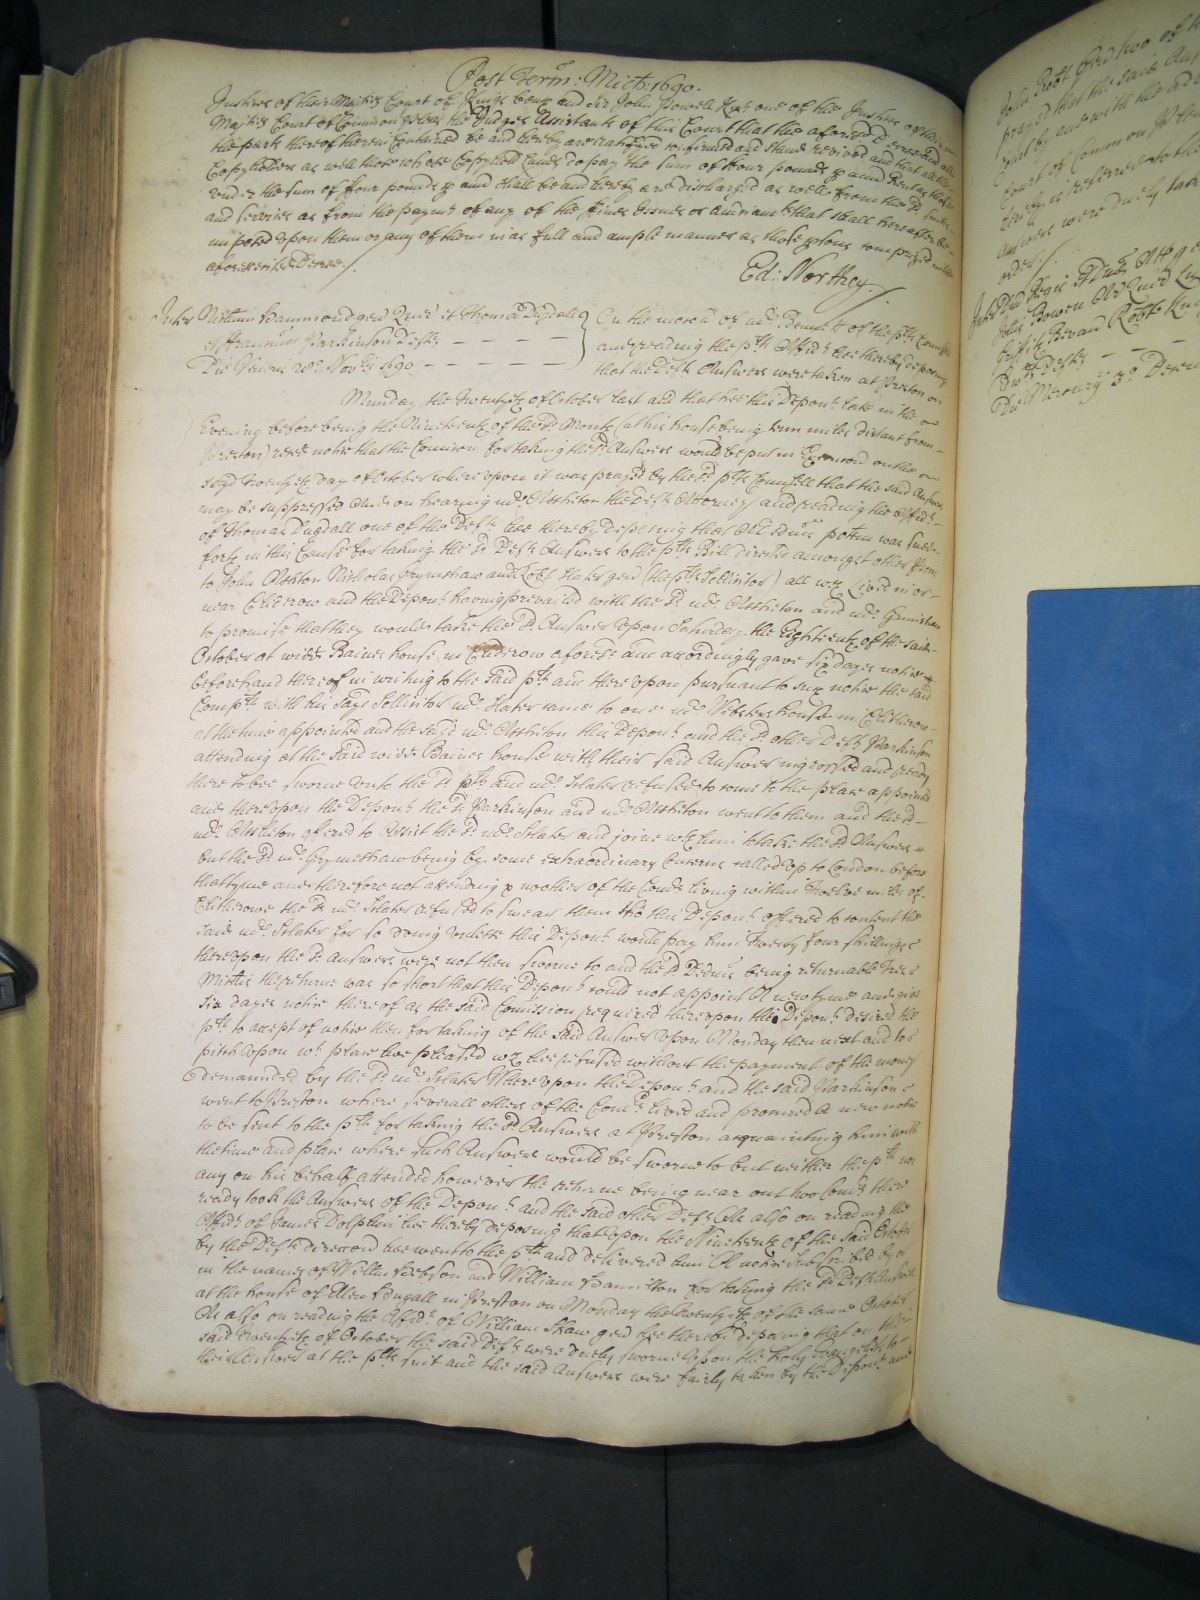 Post Term: Mich: 1690.
Justices of their Majties Court of Kings bench and Sir John Powell Knt one of the Justices of their
Majties Court of Common pleas the Judges Assistants of this Court that the aforesaid Decree and all
the parts thereof therein Contained be and hereby are ratifyed confirmed and stand revived and that all the
Copyholders as well those whose Copyhold Lands do pay the sum of ffour pounds p annu Rent as those
under the sum of ffour pounds p annu shall be and hereby are discharged as well from the sd Suites
and services as from the paymt of any of the ffines Issues or Amerciamts that shall hereafter be
imposed upon them or any of them in as full and ample manner as those psons comprized in the
aforerecited Decree ./
Ed: Northey ./
Inter Hammond gen Quer et Thoma Dugdale
et Parkinson Defts
Die Veneris 28o Novris 1690
On the mocon of mr of the plts Councell
and reading the plts Affidt hee thereby deposing
that the Defts Answers were taken at Preston on
Munday the Twentyth of October last and that hee this Depont late in the
Evening before being the Nineteenth of the sd Month (at his house being tenn miles distant from
Preston) recd notice that the Comission for taking the sd Answers would be put in Execucon on the
sayd Twentyth day of October whereupon it was prayed by the sd plts Councell that the said Answers
may be suppressed And on hearing mr Assheton the Defts Attorney and reading the Affidt
of Thomas Dugdall one of the Defts hee thereby deposing that A Dedimus potem was sued
forth in this Cause for taking the sd Defts Answers to the plts Bill directed amongst others from
to John Assheton Nicholas Grymshaw and Robt Slater gent (the plts Sollicitor) all wch Lived in or
near Clitherow and the Depont having prevailed with the sd mr Assheton and mr Grimshaw
to promise that they would take the sd Answer upon Saturday the Eighteenth of the said
October at widd Baines house in Clitherow aforesd and accordingly gave six dayes notice
beforehand thereof in writing to the said plt and thereupon pursuant to such notice the said
Complt with his sayd Sollicitor mr Slater came to one mr Websters house in Clitherow
at the time appointed and the said mr Assheton this Depont and the sd other Deft Parkinson
attending at the said widd Baines house with their said Answer ingrossed and ready
there to bee sworne unto the sd plt and mr Slater refused to come to the place appointed
and thereupon the Depont the sd Parkinson and mr Assheton went to them and the sd
mr Assheton offered to Assist the sd mr Slater and joine wth him to take the sd Answers
but the sd mr Grymeshaw being by some extraordinary Concerns called up to London before
that tyme and therefore not attending & noe other of the Comrs living within Twelve miles of
Clitherowe the sd mr Slater refused to swear them tho this Depont offered to content the
said mr Slater for so doing unlesse this Depont would pay him Twenty four shillings
thereupon the sd Answers were not then sworne to and the sd Dedimus being returnable Tres
Michis the returne was so short that this Depont could not appoint A new tyme and give
six dayes notice thereof as the said Comission required thereupon this Depont desired the
plt to accept of notice then for taking of the said Answer upon Monday then next and to
pitch upon wt place hee pleased wch hee refused without the payment of the money
demannded by the sd mr Slater Whereupon the Depont and the said Parkinson
went to Preston where severall others of the Comrs lived and procured A new notice
to be sent to the plt for taking the sd Answers at Preston acquainting him with
the time and place where such Answers would be sworne to but neither the plt nor
any on his behalf attended however the returne being near out two Comrs there
ready took the Answers of the Depont and the said other Deft As also on reading the
Affidt of James Dolphin hee thereby deposing that upon the Nineteenth of the said October
by the Defts direccon hee went to the plt and delivered him A notice subscribed by or
in the names of Willm Hebson and William Bannister for taking the sd Defts Answers
at the house of Allen Dugall in Preston on Monday the Twentyth of the same October
As also on reading the Affidt of William Shaw gen hee thereby deposing that on the
said Twentyth of October the said Defts were duely sworne upon the holy Evangelists to
their Answers at the plts suit and the said Answers were fairly taken by the Depont and